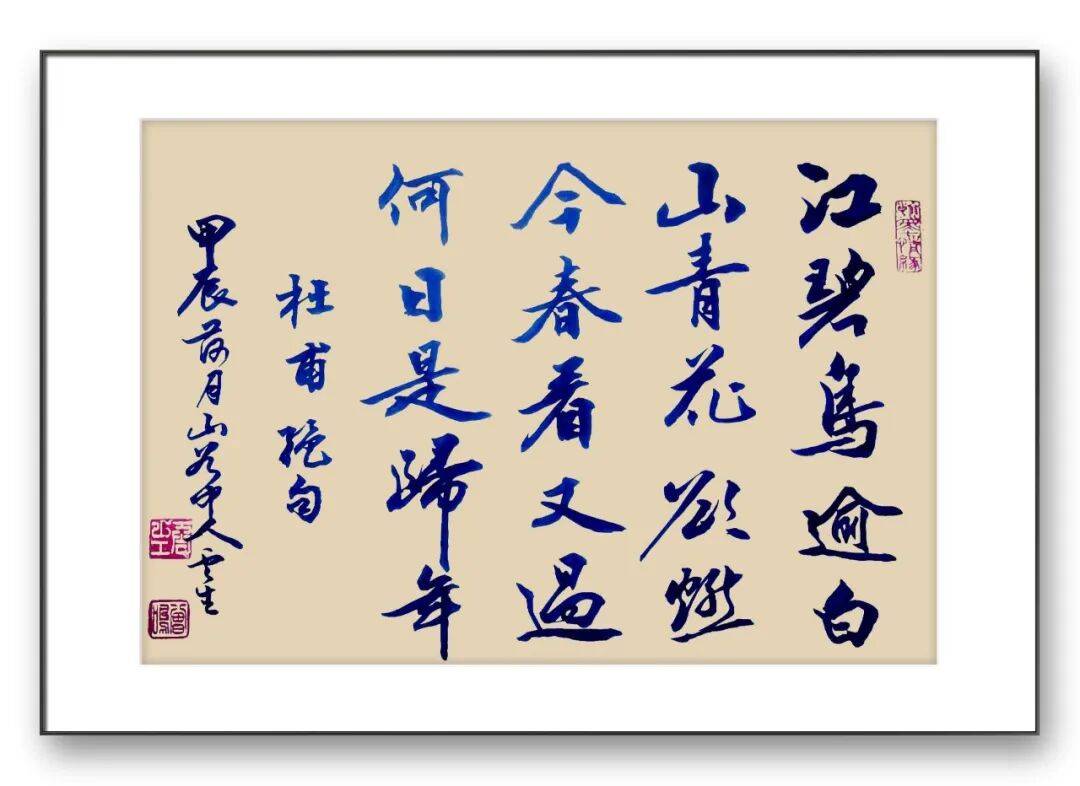 江碧鸟逾白
山青花欲燃
今春看又過
何日是歸年
杜甫绝句
甲辰荷月山谷中人雲生